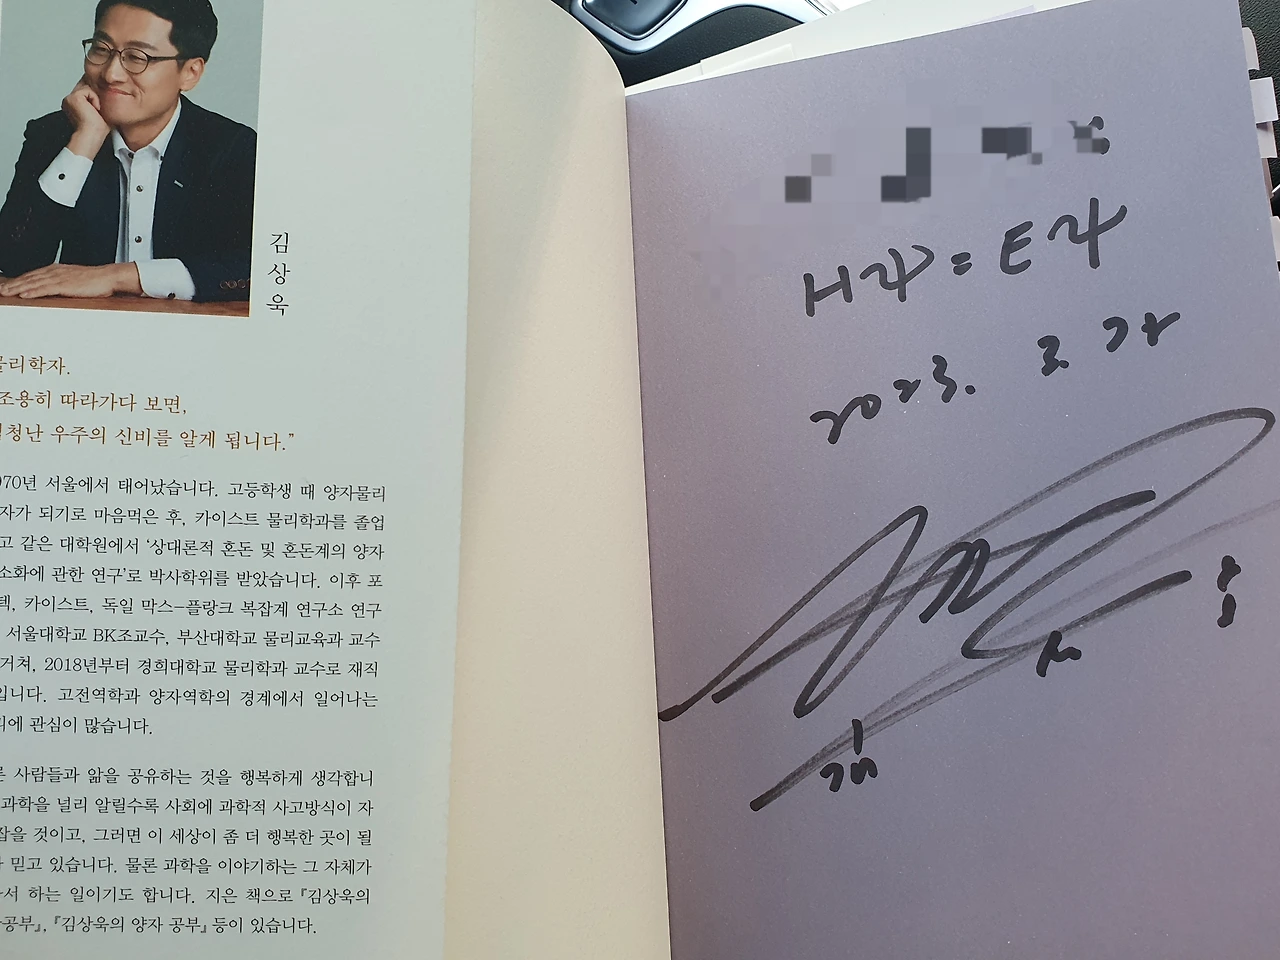 김상욱
물리학자.
조용히 따라가다 보면,
엄청난 우주의 신비를 알게 됩니다.”
970년 서울에서 태어났습니다. 고등학생 때 양자물리
자가 되기로 마음먹은 후, 카이스트 물리학과를 졸업
고 같은 대학원에서 ‘상대론적 혼돈 및 혼돈계의 양자
소화에 관한 연구’로 박사학위를 받았습니다. 이후 포
텍, 카이스트, 독일 막스–플랑크 복잡계 연구소 연구
서울대학교 BK조교수, 부산대학교 물리교육과 교수
거쳐, 2018년부터 경희대학교 물리학과 교수로 재직
입니다. 고전역학과 양자역학의 경계에서 일어나는
에 관심이 많습니다.
사람들과 앎을 공유하는 것을 행복하게 생각합니
과학을 널리 알릴수록 사회에 과학적 사고방식이 자
잡을 것이고, 그러면 이 세상이 좀 더 행복한 곳이 될
믿고 있습니다. 물론 과학을 이야기하는 그 자체가
서 하는 일이기도 합니다. 지은 책으로 『김상욱의
공부』, 『김상욱의 양자 공부』 등이 있습니다.
Hψ = Eψ
2023.
김 상 욱